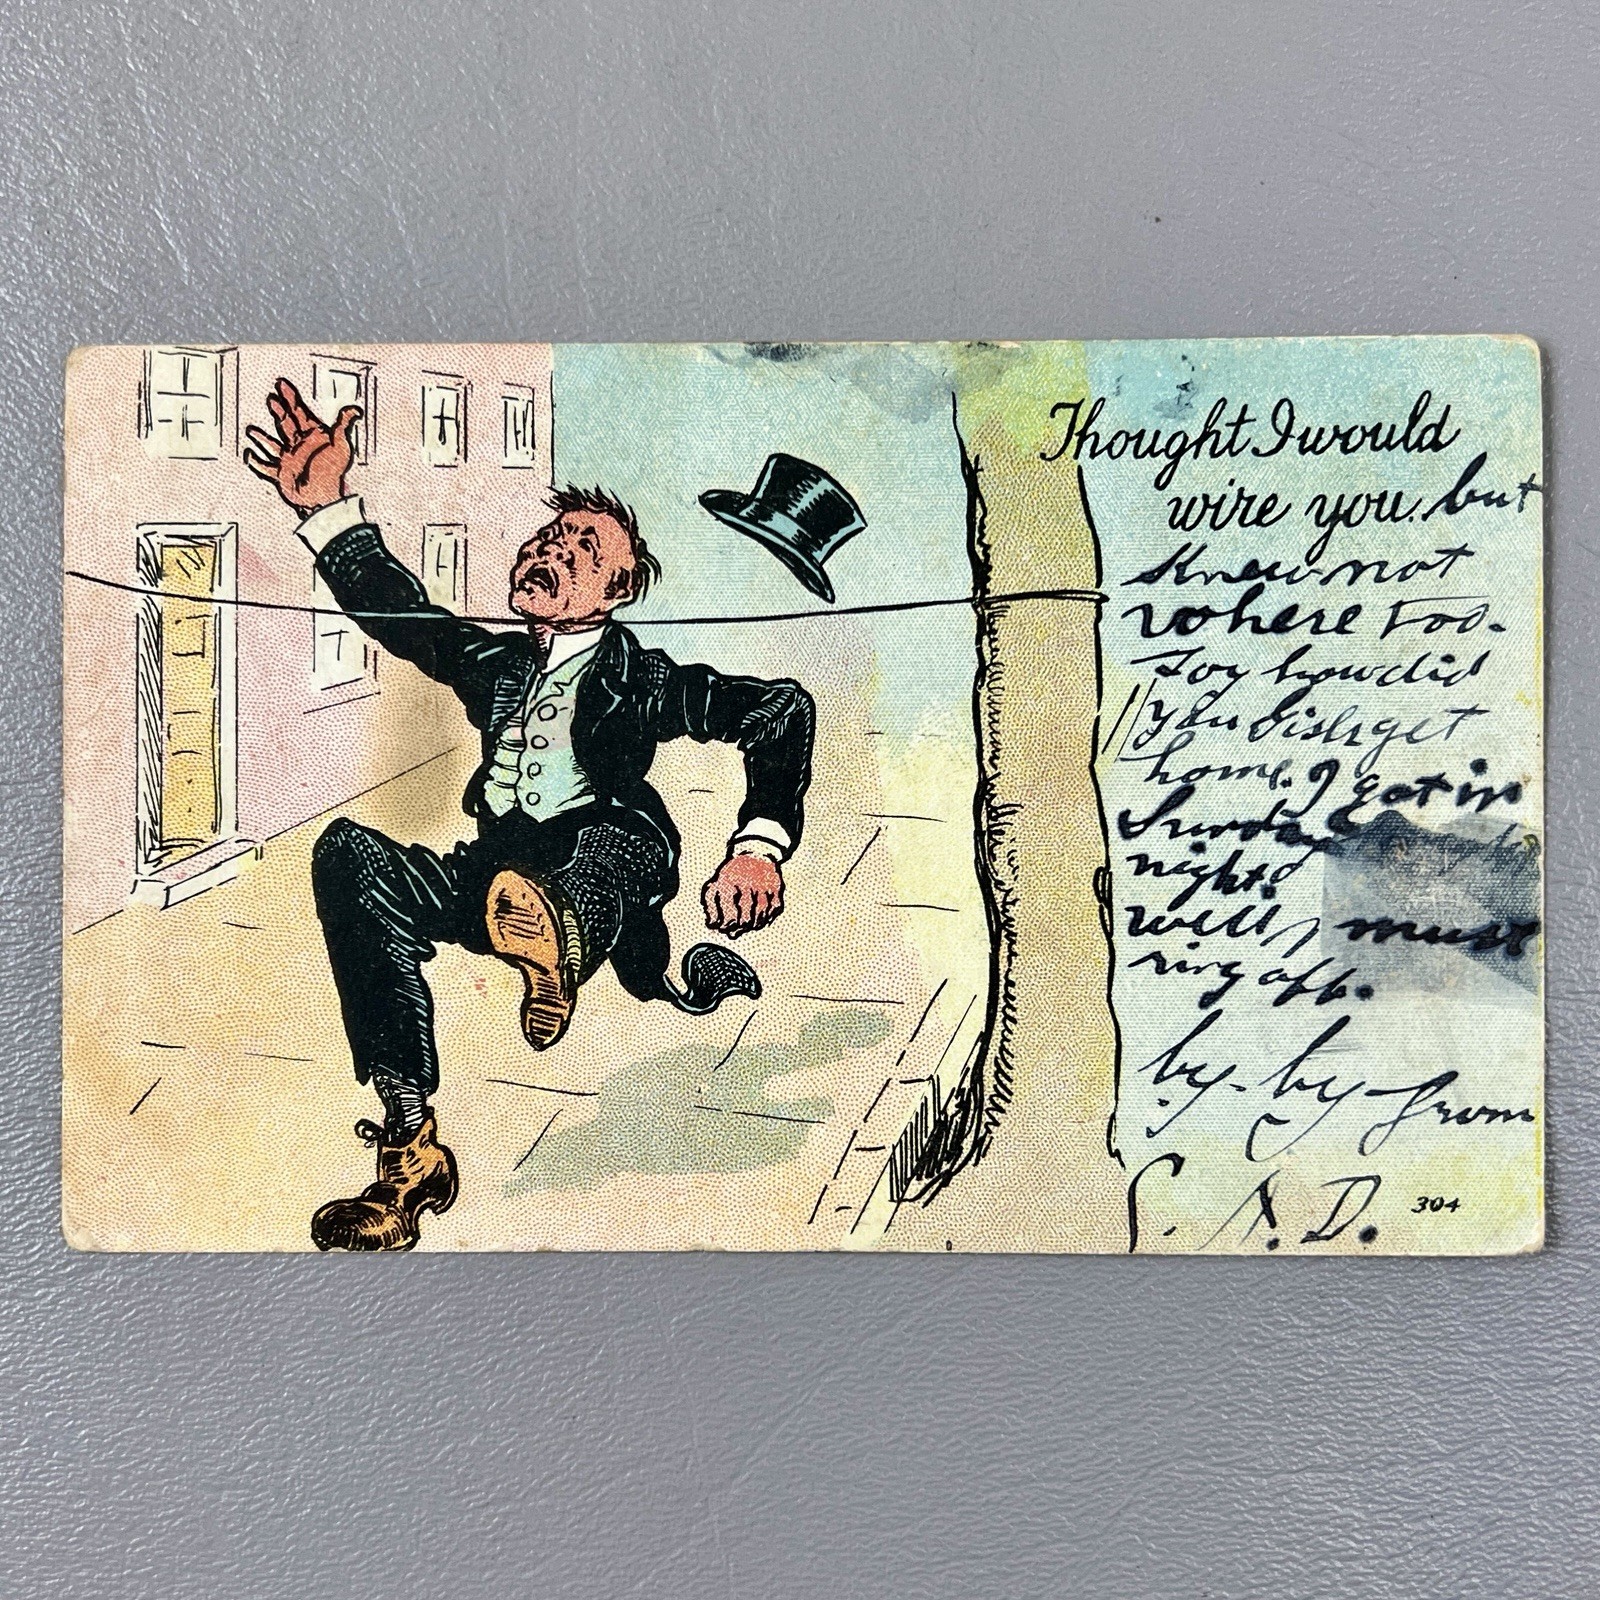 Thought I would
wire you. but
Knew not
where too.
how did
you get
home. I got in
Sunday
night.
well, must
ring off.
by-by from
A. D.
304